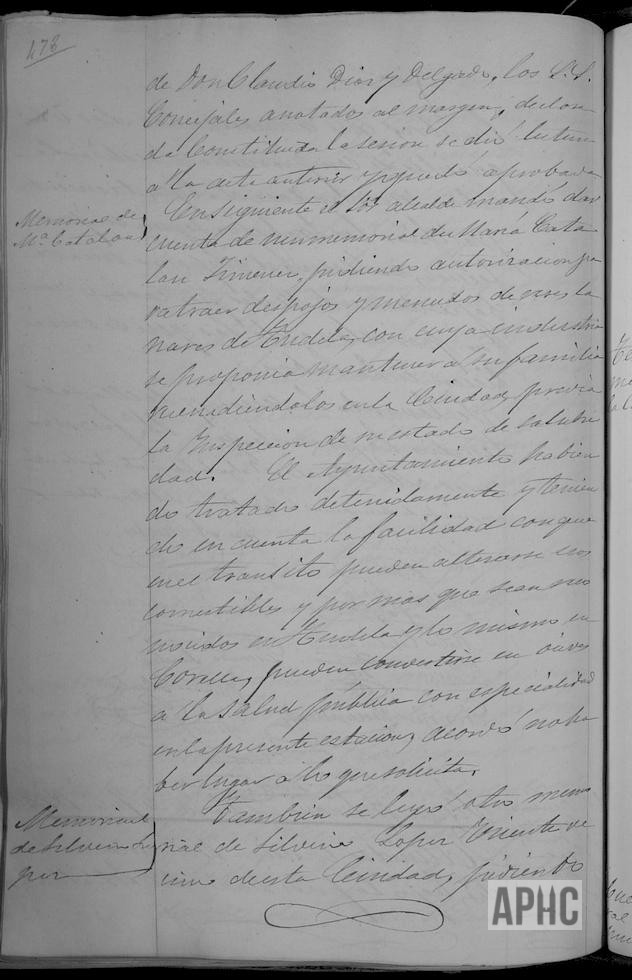 473
de Don Claudio Dias y Delgado, los S.S.
Concejales anotados al margen, declara
da Constituida la sesion se dió lectura
a la acta anterior y quedó aprobada
Memorial de
Mª Catalan
En siguiente el Sor alcalde mandó dar
cuenta de un memorial de Maria Cata
lan Jimenez, pidiendo autorizacion pa
ra traer despojos y menudos de reses la
nares de Tudela, con cuya industria
se proponia mantener a su familia
vendiéndolos en la Ciudad, previa
la Inspeccion de su estado de salubri
dad. El Ayuntamiento habien
do tratado detenidamente y tenien
do en cuenta la facilidad con que
en el transito pueden alterarse esos
comestibles y por mas que sean reco
nocidos en Tudela y lo mismo en
Corella, pueden convertirse en
a la salud pública con especialidad
en la presente estacion, acordó no ha
ber lugar a lo que solicita.
Memorial
de Silverio Lo
pez
Tambien se leyó otro memo
rial de Silverio Lopez Vicente ve
cino de esta Ciudad, pidiendo
APHC